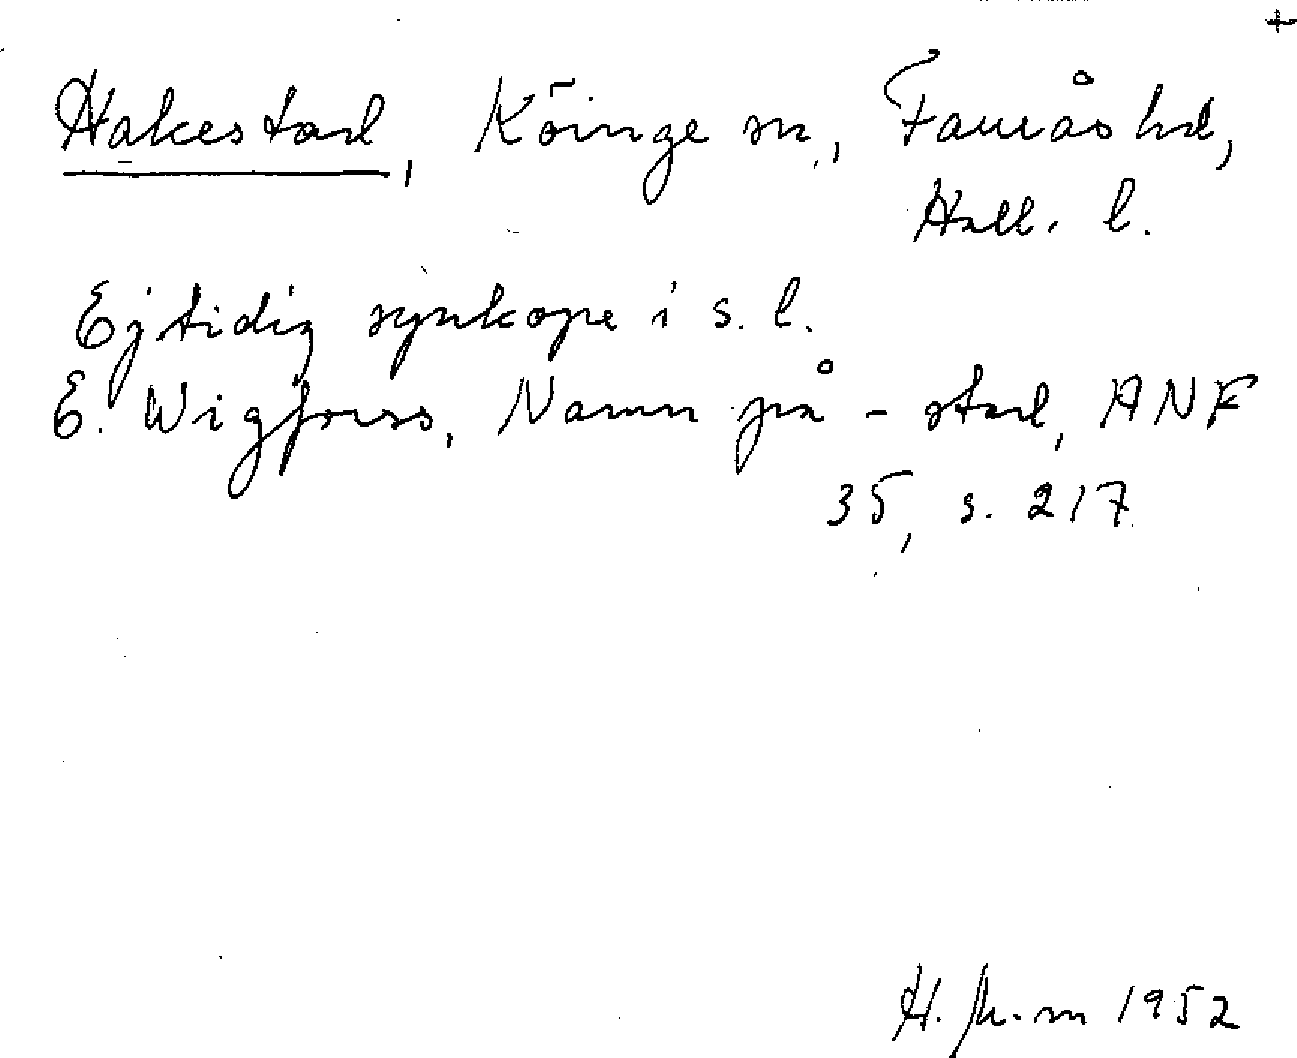 +
Hakestad, Köinge sn, Faurås hd,
Hall. l.
Ej tidig synkope i s. l.
E. Wigforss, Namn på -stad, ANF
35, s. 217
H. 1952